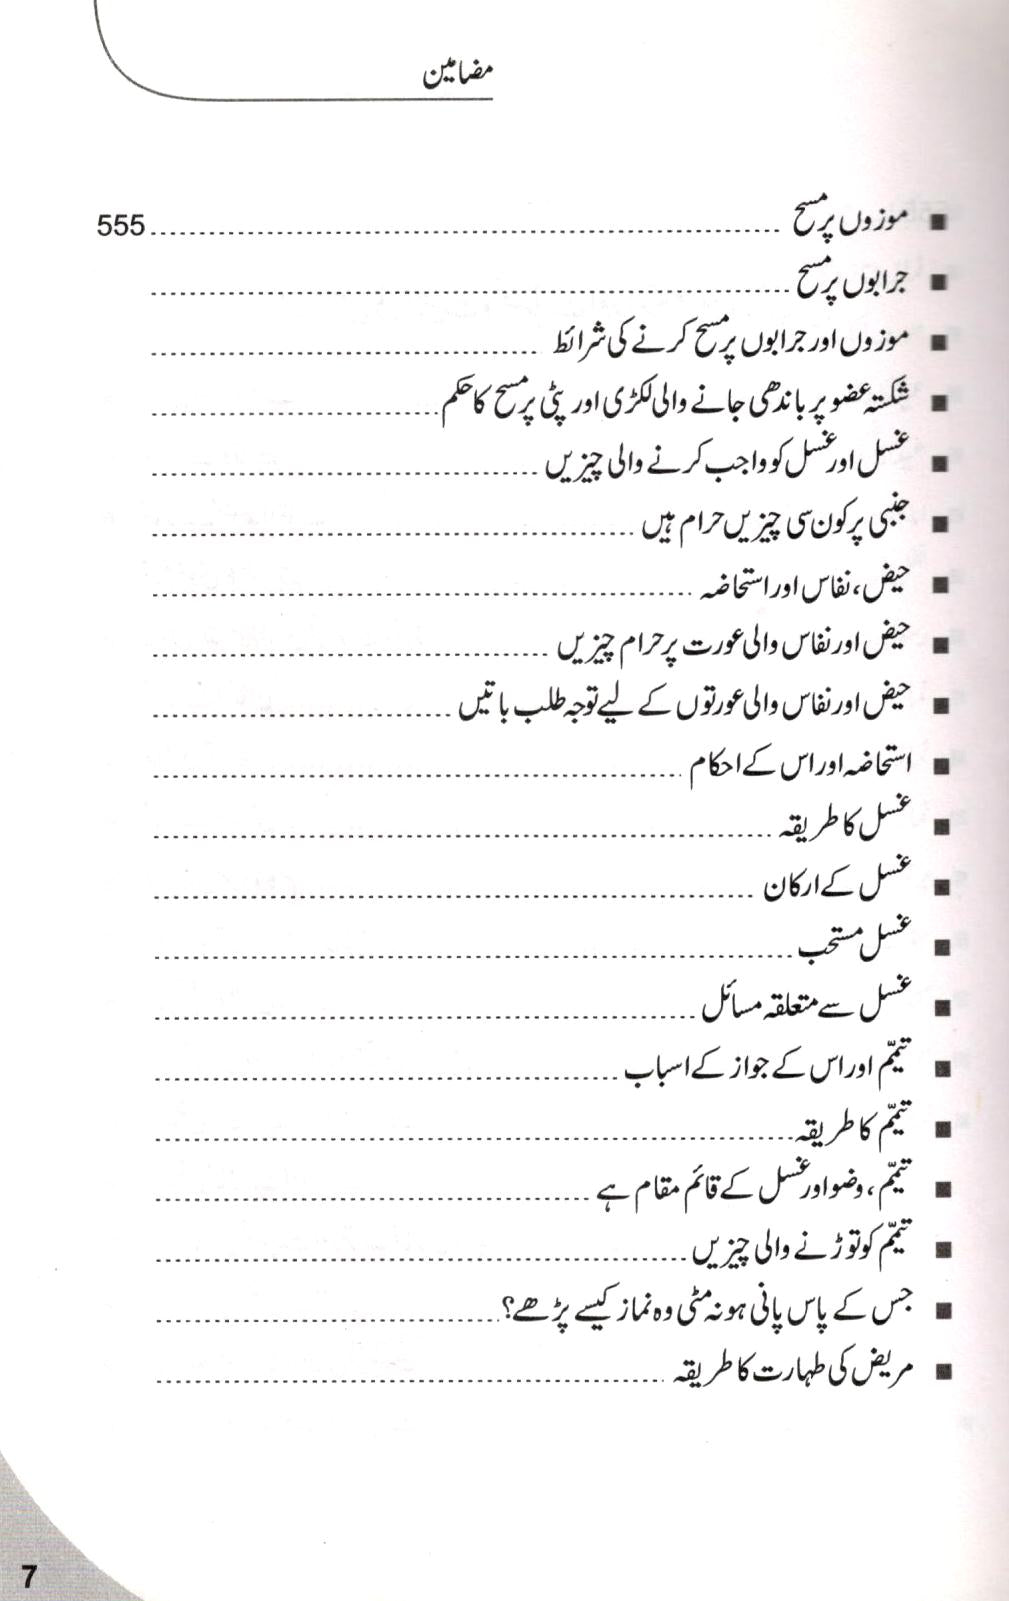 مضامین
■ موزوں پر مسح ........................................ 555
■ جرابوں پر مسح ........................................
■ موزوں اور جرابوں پر مسح کرنے کی شرائط ........................................
■ شکستہ عضو پر باندھی جانے والی لکڑی اور پٹی پر مسح کا حکم ........................................
■ غسل اور غسل کو واجب کرنے والی چیزیں ........................................
■ جنبی پر کون سی چیزیں حرام ہیں ........................................
■ حیض، نفاس اور استحاضہ ........................................
■ حیض اور نفاس والی عورت پر حرام چیزیں ........................................
■ حیض اور نفاس والی عورتوں کے لیے توجہ طلب باتیں ........................................
■ استحاضہ اور اس کے احکام ........................................
■ غسل کا طریقہ ........................................
■ غسل کے ارکان ........................................
■ غسل مستحب ........................................
■ غسل سے متعلقہ مسائل ........................................
■ تیمّم اور اس کے جواز کے اسباب ........................................
■ تیمّم کا طریقہ ........................................
■ تیمّم، وضو اور غسل کے قائم مقام ہے ........................................
■ تیمّم کو توڑنے والی چیزیں ........................................
■ جس کے پاس پانی ہو نہ مٹی وہ نماز کیسے پڑھے؟ ........................................
■ مریض کی طہارت کا طریقہ ........................................
7